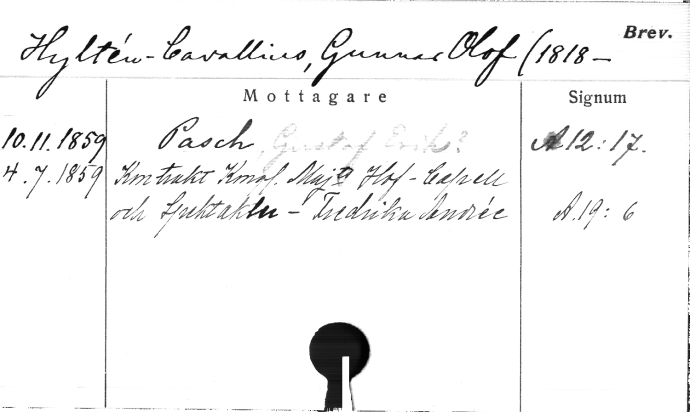 Brev.
Hyltén-Cavallius, Gunnar Olof (1818-
Mottagare
Signum
10.11.1859 Pasch, Gustaf Erik? A 12:17.
4.7.1859 Kontrakt Kongl. Majts Hof-Capell
och Spektakler - Fredrika Andrée A.19:6